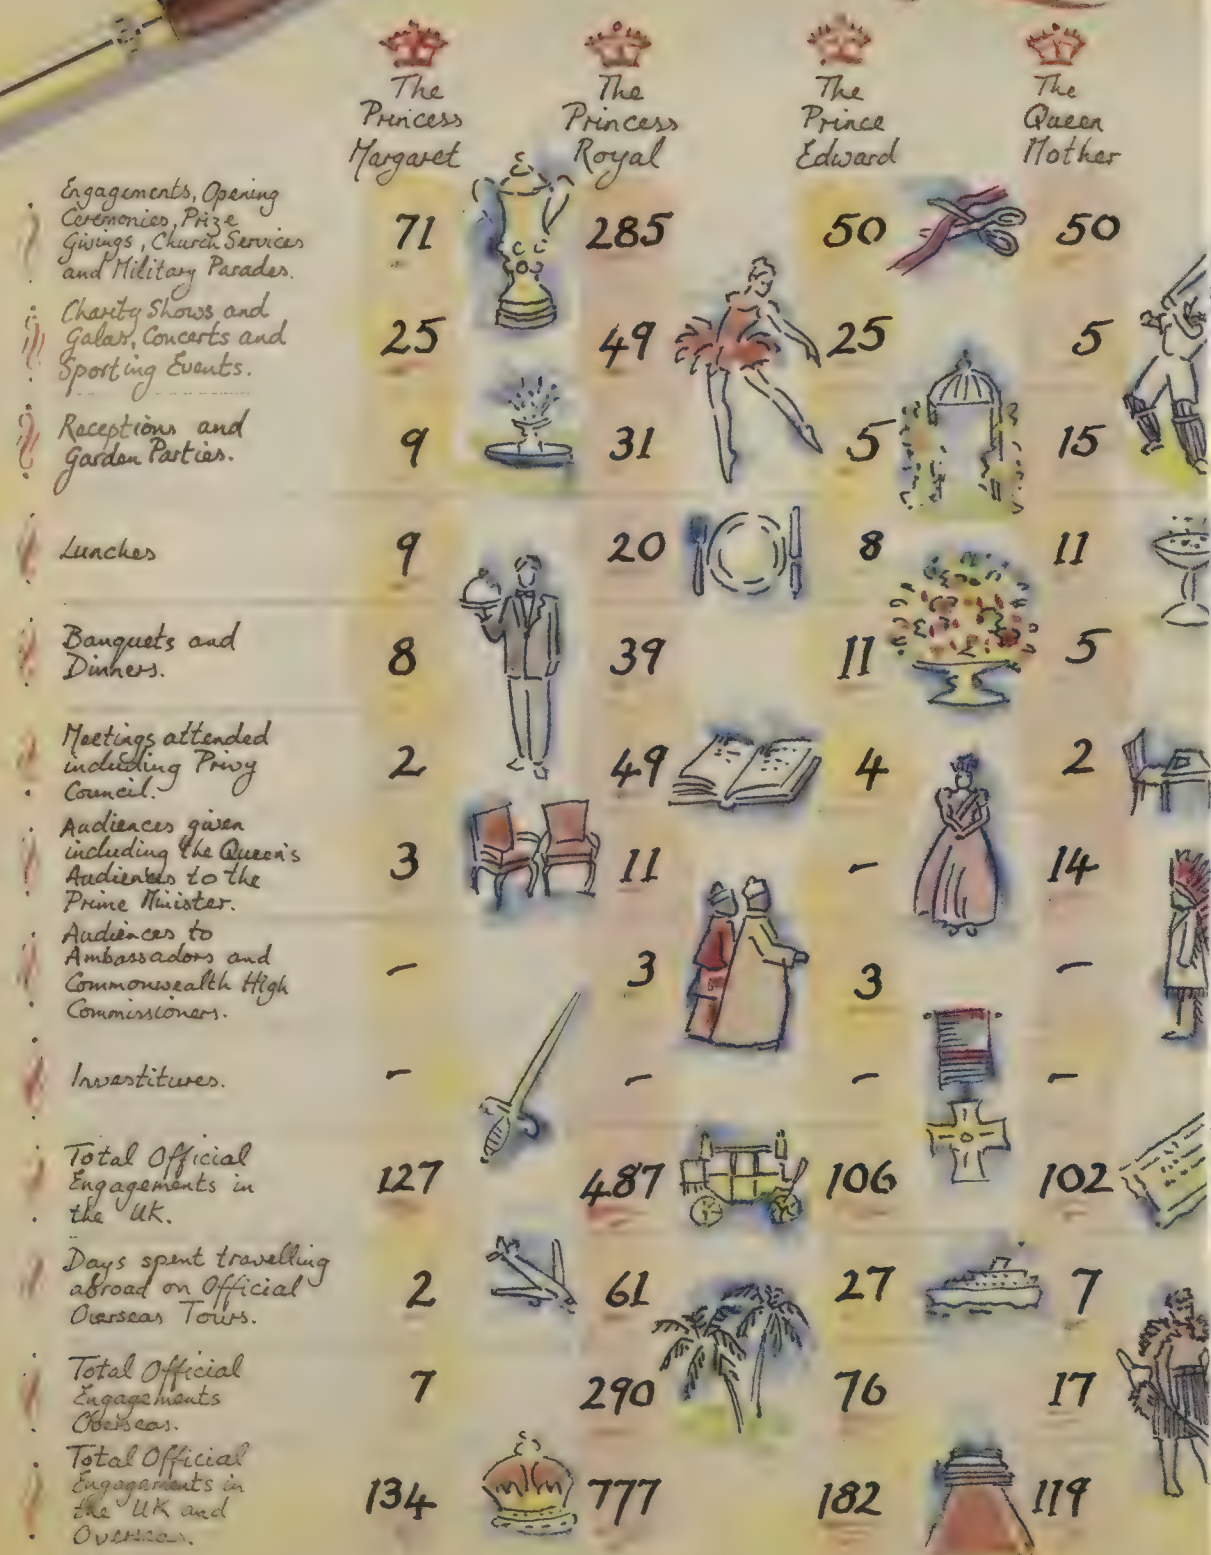 The The The The
Princess Princess Prince Queen
Margaret Royal Edward Mother
Engagements, Opening
Ceremonies, Prize
Givings, Church Services
and Military Parades.
71 285 50 50
Charity Shows and
Galas, Concerts and
Sporting Events.
25 49 25 5
Receptions and
Garden Parties.
9 31 5 15
Lunches
9 20 8 11
Banquets and
Dinners.
8 39 11 5
Meetings attended
including Privy
Council.
2 49 4 2
Audiences given
including the Queen's
Audiences to the
Prime Minister.
3 11 - 14
Audiences to
Ambassadors and
Commonwealth High
Commissioners.
- 3 3 -
Investitures.
- - - -
Total Official
Engagements in
the UK.
127 487 106 102
Days spent travelling
abroad on Official
Overseas Tours.
2 61 27 7
Total Official
Engagements
Overseas.
7 290 76 17
Total Official
Engagements in
the UK and
Overseas.
134 777 182 119